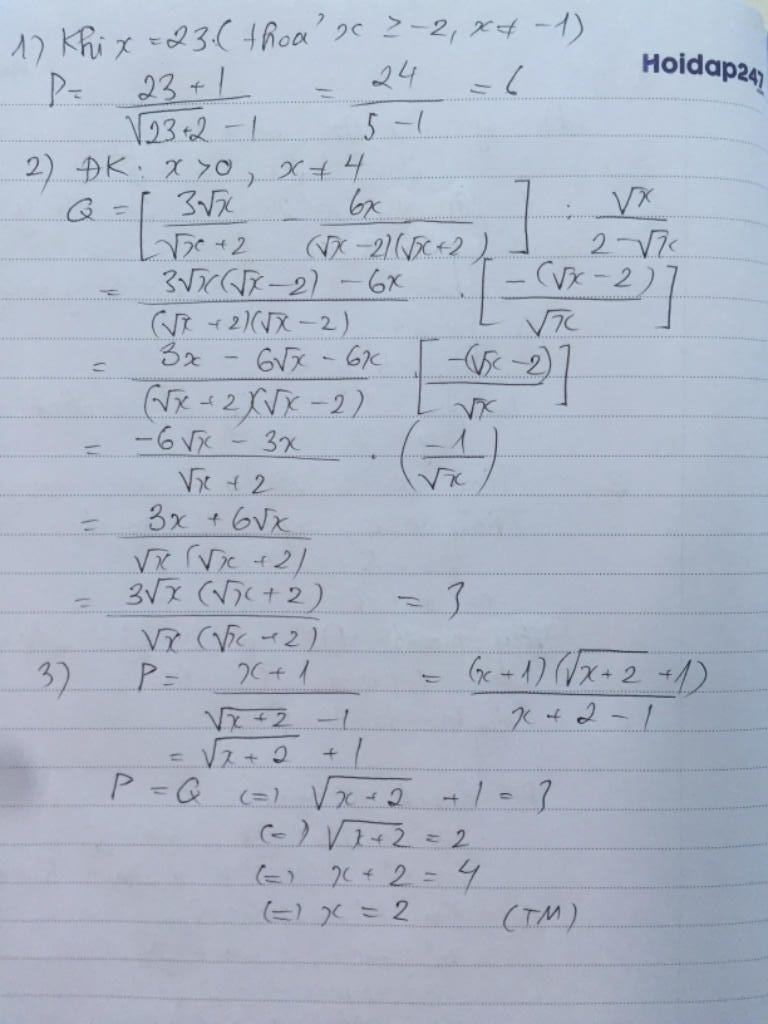 1) Khi x = 23 (thoả x ≥ -2, x ≠ -1)
Hoidap247
P = (23 + 1)/(√(23+2) - 1) = 24/(5 - 1) = 6
2) ĐK: x > 0, x ≠ 4
Q = [3√x/(√x + 2) - 6x/((√x - 2)(√x + 2))] : √x/(2 - √x)
= (3√x(√x - 2) - 6x)/((√x + 2)(√x - 2)) . [-(√x - 2)/√x]
= (3x - 6√x - 6x)/((√x + 2)(√x - 2)) . [-(√x - 2)/√x]
= (-6√x - 3x)/(√x + 2) . (-1/√x)
= (3x + 6√x)/(√x(√x + 2))
= 3√x(√x + 2)/(√x(√x + 2)) = 3
3) P = (x + 1)/(√(x+2) - 1) = (x + 1)(√(x+2) + 1)/(x + 2 - 1)
= √(x + 2) + 1
P = Q (=) √(x+2) + 1 = 3
(=) √(x+2) = 2
(=) x + 2 = 4
(=) x = 2 (TM)